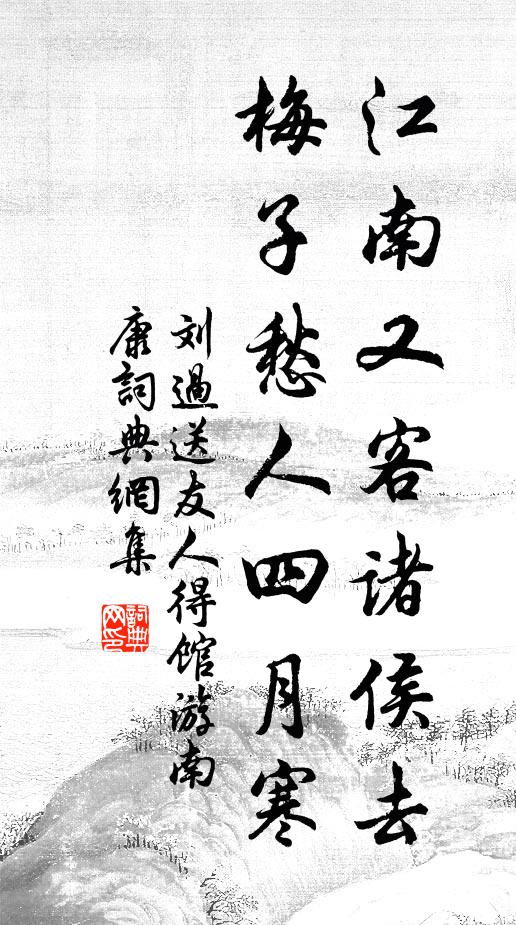 江南又客诸侯去
梅子愁人四月寒
刘過送友人得馆游南
康詞典網集
詞典
网印